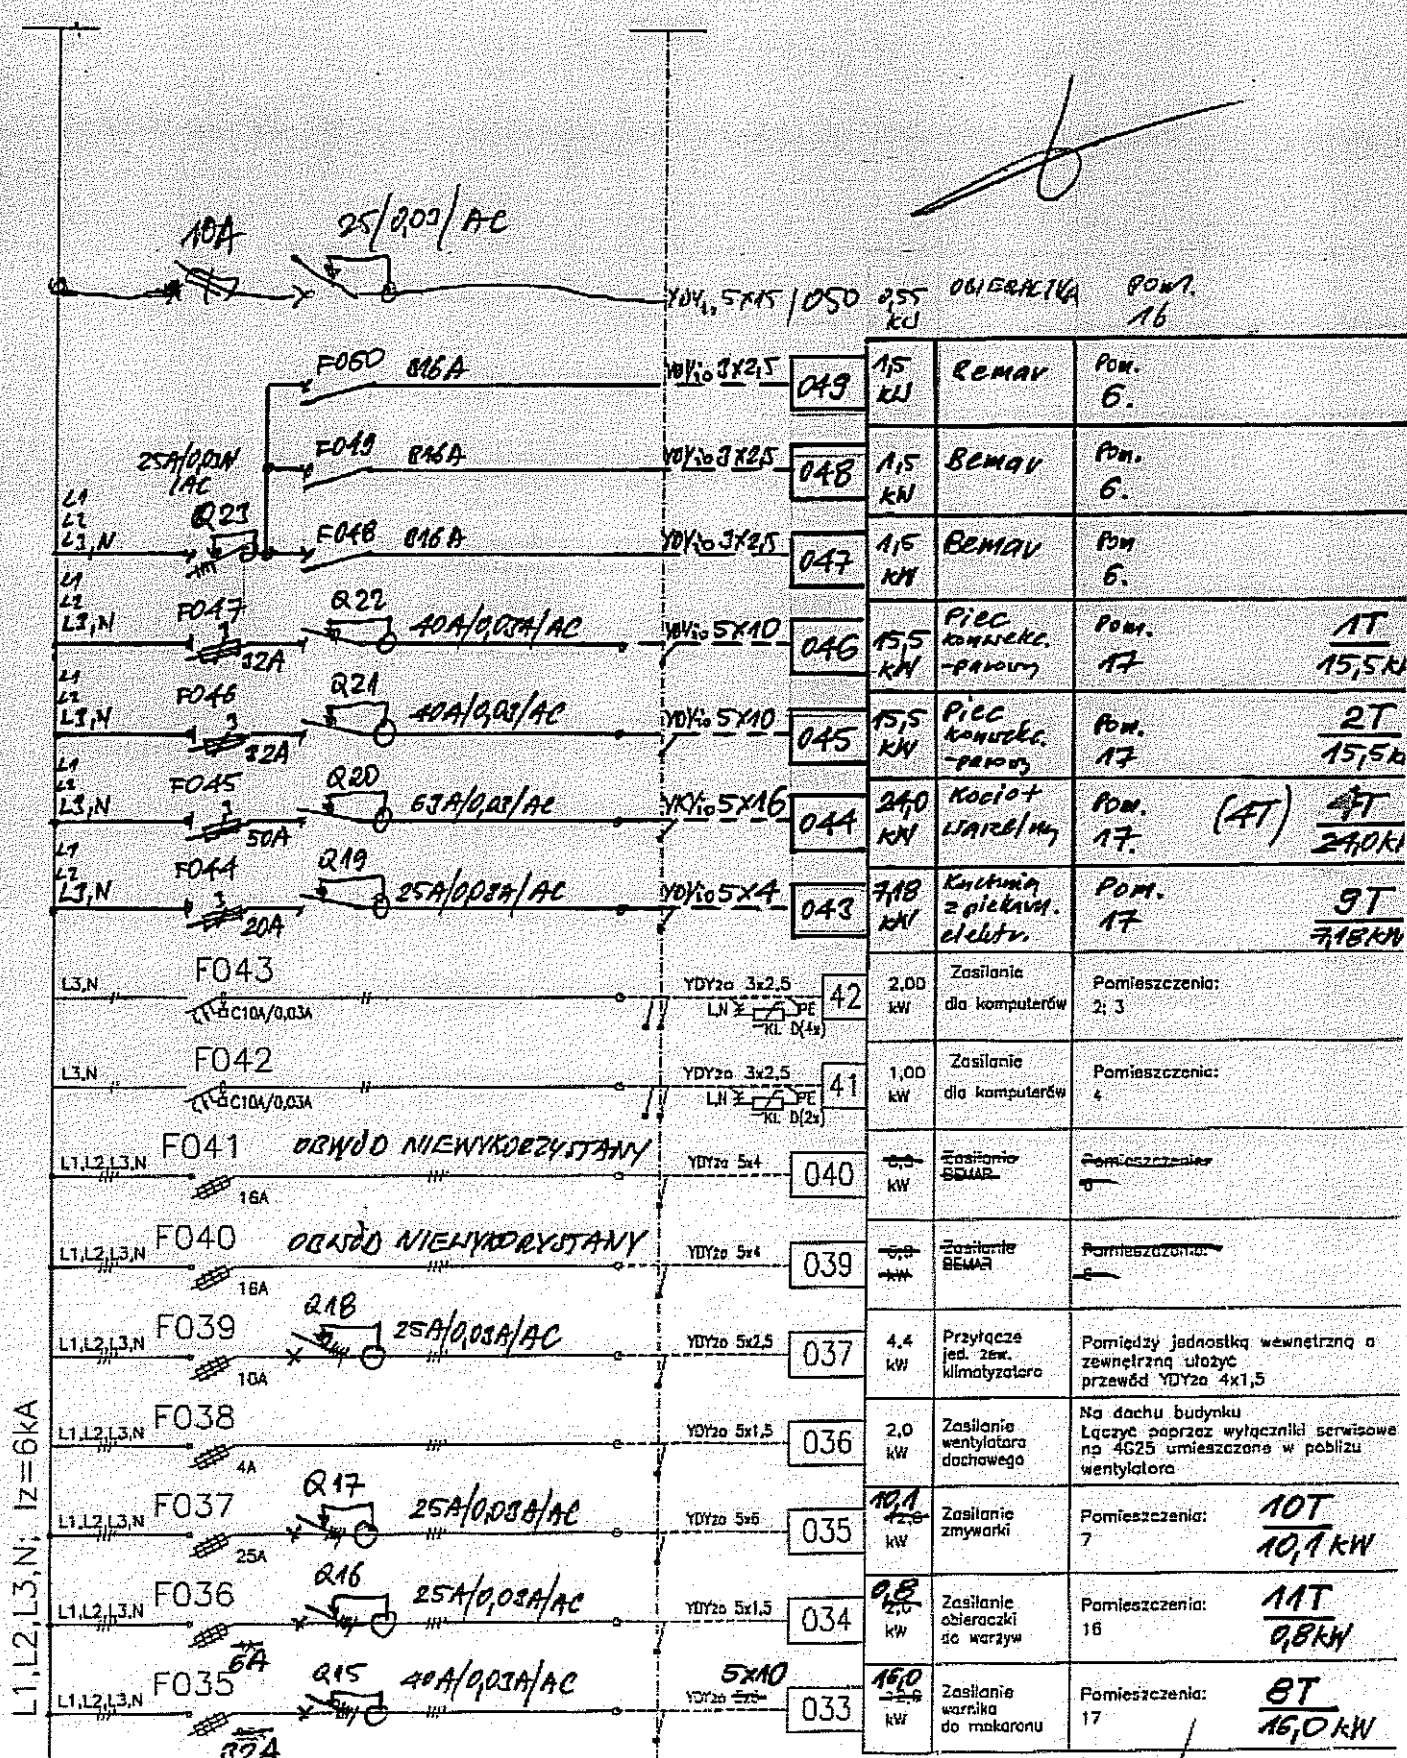 10A 25/0,03/AC
YDYżo 5x1,5 /050 0,55 kW OBIERACZKA POM. 16
F050 B16A YDYżo 3x2,5 049 1,5 kW Bemar Pom. 6.
25A/0,03A/AC
F049 B16A YDYżo 3x2,5 048 1,5 kW Bemar Pom. 6.
L1 L2 L3,N Q23 F048 B16A YDYżo 3x2,5 047 1,5 kW Bemar Pom 6.
L1 L2 L3,N F047 32A Q22 40A/0,03A/AC YDYżo 5x10 046 15,5 kW Piec konwekc. -parowy Pom. 17 1T 15,5k
L1 L2 L3,N F046 32A Q21 40A/0,03/AC YDYżo 5x10 045 15,5 kW Piec konwekc. -parowy Pom. 17 2T 15,5k
L1 L2 L3,N F045 50A Q20 63A/0,03/AC YKYżo 5x16 044 24,0 kW Kocioł warzelny Pom. 17. (4T) 4T 24,0k
L1 L2 L3,N F044 20A Q19 25A/0,03A/AC YDYżo 5x4 043 7,18 kW Kuchnia z piekarn. elektr. Pom. 17 9T 7,18kW
L3,N F043 C10A/0,03A YDYżo 3x2,5 L,N PE KL. D(4x) 42 2,00 kW Zasilanie dla komputerów Pomieszczenia: 2; 3
L3,N F042 C10A/0,03A YDYżo 3x2,5 L,N PE KL. D(2x) 41 1,00 kW Zasilanie dla komputerów Pomieszczenia: 4
L1,L2,L3,N F041 16A OBWÓD NIEWYKORZYSTANY YDYżo 5x4 040 kW Zasilanie BEMAR Pomieszczenia:
L1,L2,L3,N F040 16A OBWÓD NIEWYKORYSTANY YDYżo 5x4 039 kW Zasilanie BEMAR Pomieszczenia:
L1,L2,L3,N F039 10A Q18 25A/0,03A/AC YDYżo 5x2,5 037 4,4 kW Przyłącze jed. zew. klimatyzatora Pomiędzy jednostką wewnętrzną a
zewnętrzną ułożyć
przewód YDYżo 4x1,5
L1,L2,L3,N F038 4A YDYżo 5x1,5 036 2,0 kW Zasilanie wentylatora dachowego Na dachu budynku
Łączyć poprzez wyłączniki serwisowe
np 4G25 umieszczone w pobliżu
wentylatora
L1,L2,L3,N F037 25A Q17 25A/0,03A/AC YDYżo 5x6 035 10,1 kW Zasilanie zmywarki Pomieszczenia: 7 10T 10,1 kW
L1,L2,L3,N F036 6A Q16 25A/0,03A/AC YDYżo 5x1,5 034 0,8 kW Zasilanie obieraczki do warzyw Pomieszczenia: 16 11T 0,8kW
L1,L2,L3,N F035 32A Q15 40A/0,03A/AC 5x10 YDYżo 033 16,0 kW Zasilanie warnika do makaronu Pomieszczenia: 17 8T 16,0 kW
L1,L2,L3,N; Iz=6kA